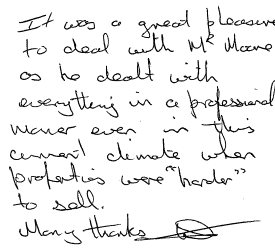 It was a great pleasure
to deal with Mr Moore
as he dealt with
everything in a professional
maner even in this
current climate when
properties were "harder"
to sell.
Many thanks